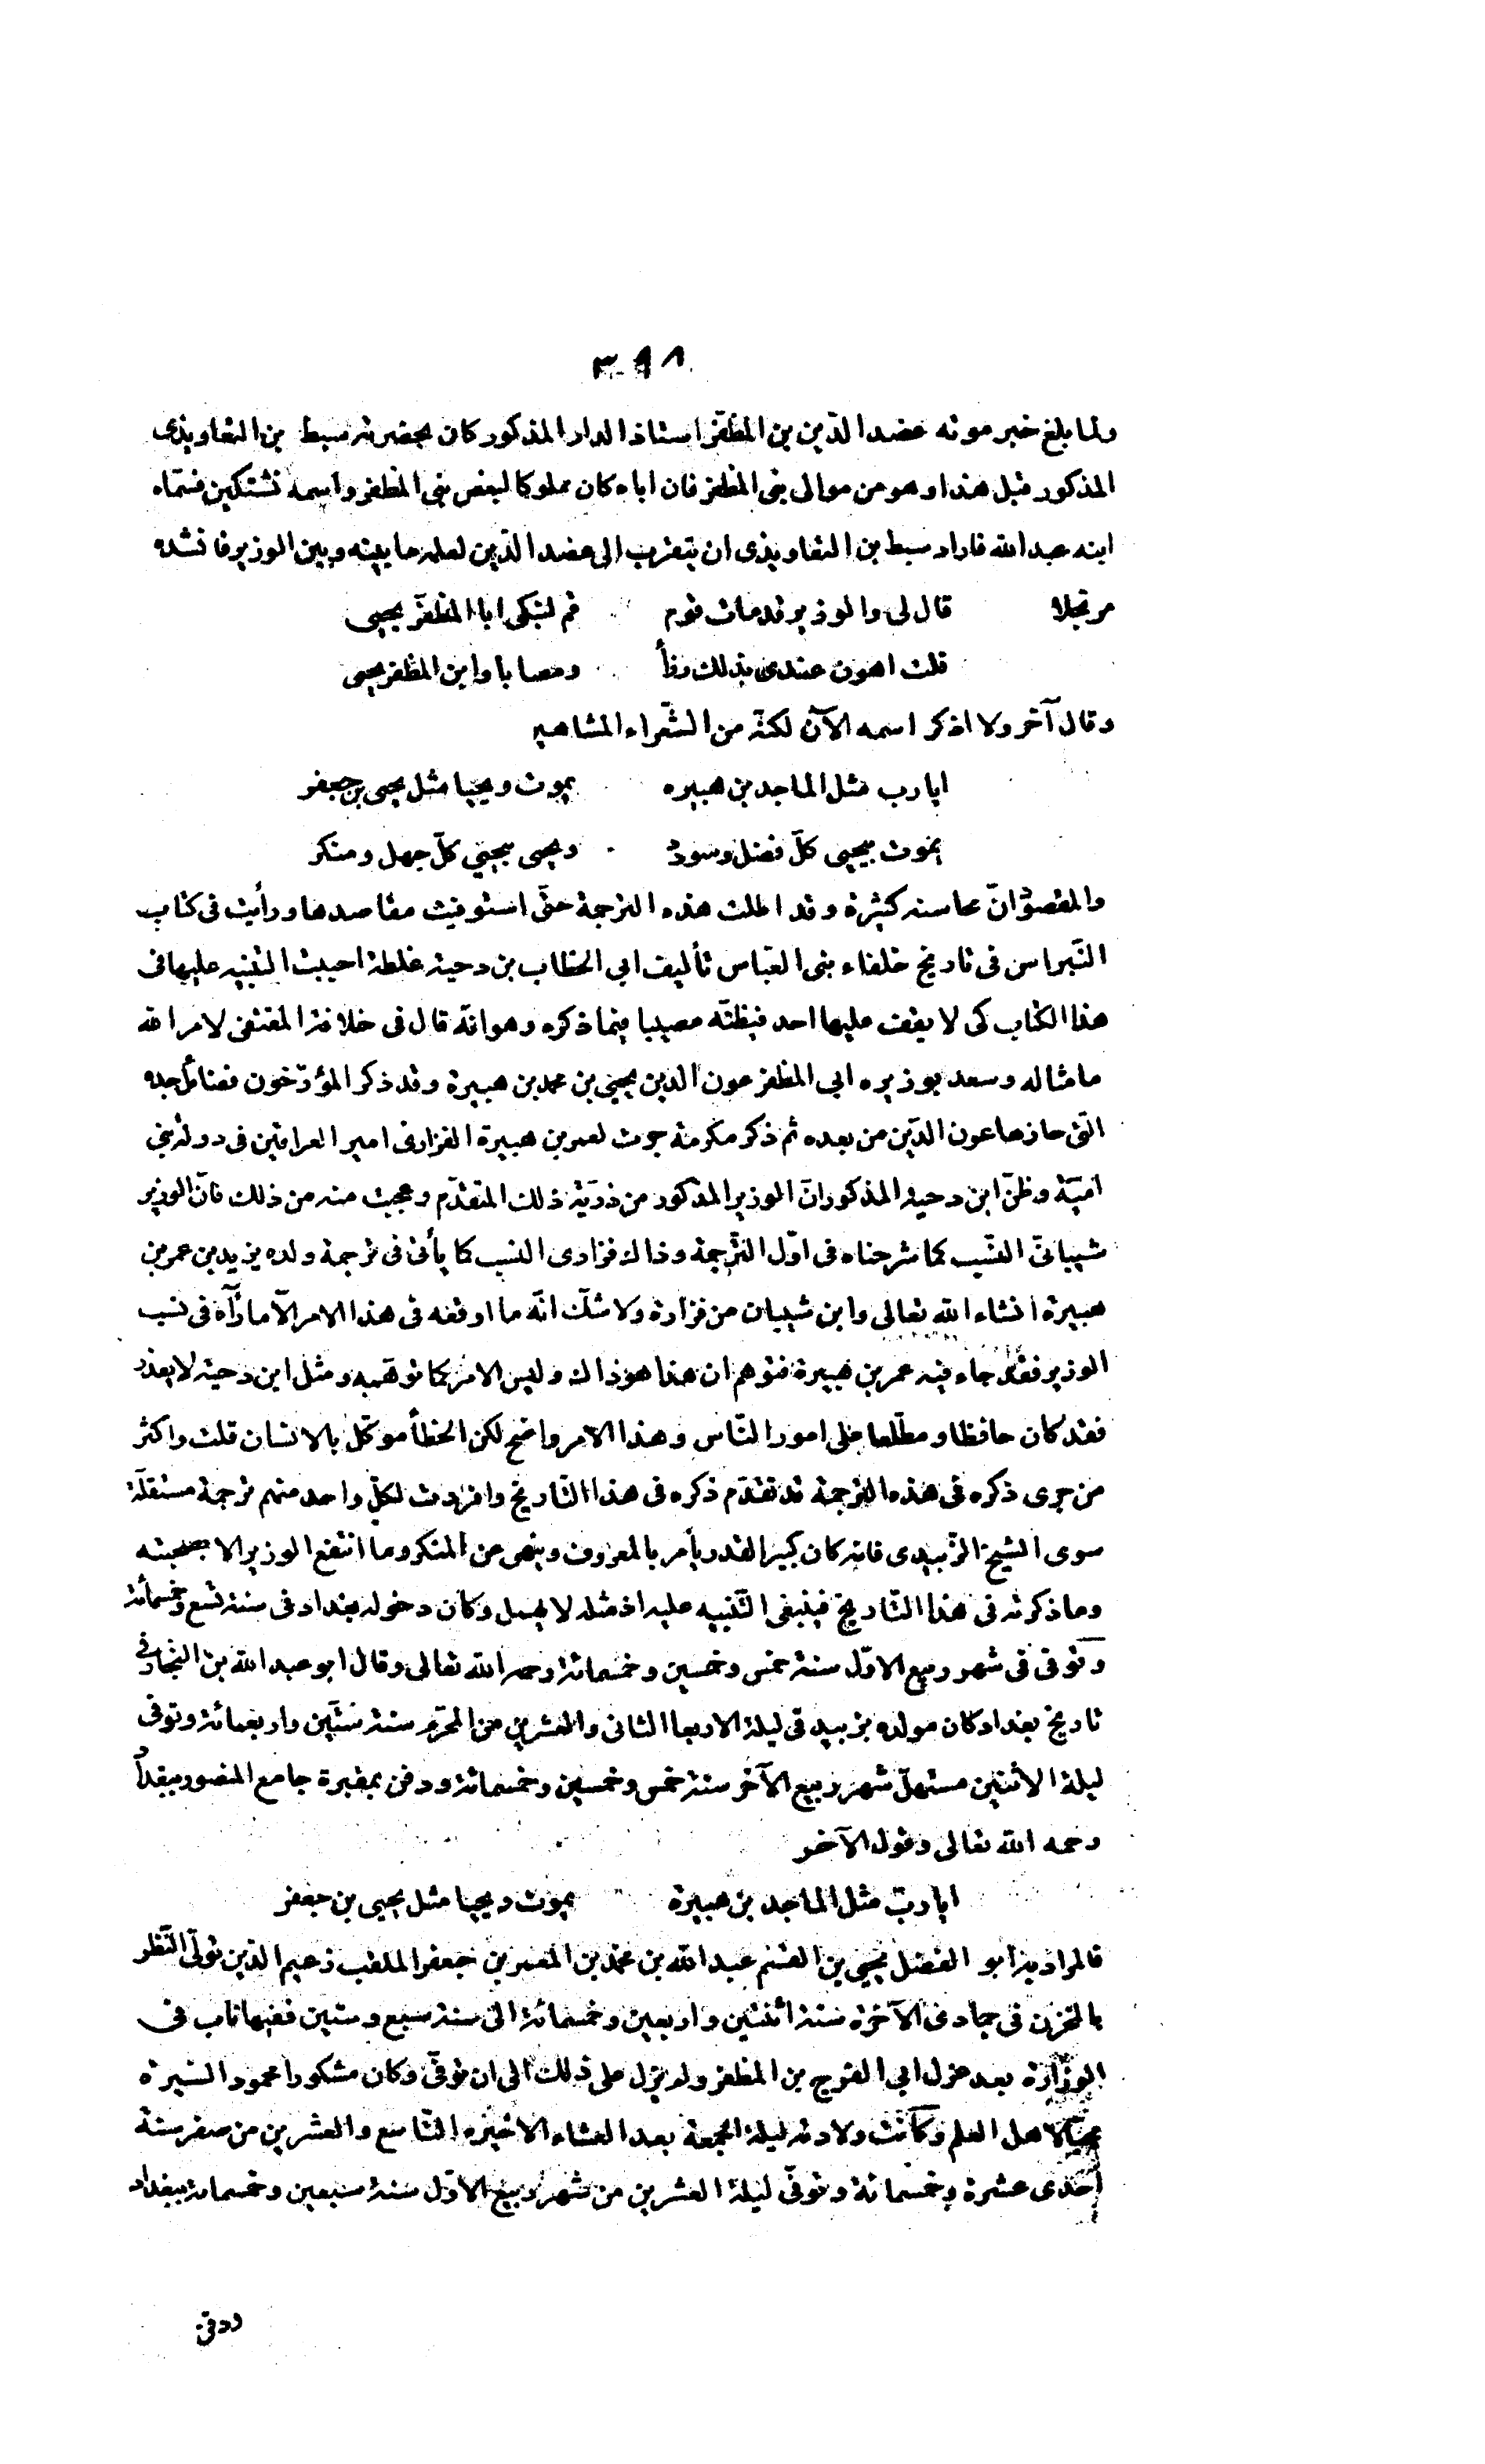 ٣٩٨
ولما بلغ خبر موته عضد الدّين بن المظفّر استاذ الدار المذكور كان بحضرته سبط بن التعاويذى
المذكور قبل هذا وهو من موالى بنى المظفر فان اباه كان مملوكا لبعض بنى المظفر واسمه نشتكين فسمّاه
ابنه عبد الله فاراد سبط بن التعاويذى ان يتقرب الى عضد الدّين لعلمه ما بينه وبين الوزير فانشده
مرتجلا قال لى والوزير قد مات قوم قم لنبكى ابا المظفّر يحيى
قلت اهون عندى بذلك رزأ ومصابا وابن المظفر يحيى
وقال آخر ولا اذكر اسمه الآن لكنّه من الشّعراء المشاهير
ايا رب مثل الماجد بن هبيره يموت ويحيا مثل يحيى بن جعفر
يموت بيحيى كلّ فضل وسودد ويحيى بيحيى كلّ جهل ومنكر
والمقصود انّ محاسنه كثيرة وقد اطلت هذه الترجمة حتّى استوفيت مقاصدها ورأيت فى كتاب
النّبراس فى تاريخ خلفاء بنى العبّاس تأليف ابى الخطاب بن دحية غلطة احببت التنبيه عليها فى
هذا الكتاب كى لا يقف عليها احد فيظنّه مصيبا فيما ذكره وهو انّه قال فى خلافة المقتفى لامر الله
ما مثاله وسعد بوزيره ابى المظفر عون الدين يحيى بن محمد بن هبيرة وقد ذكر المؤرّخون فضائل جده
التى حازها عون الدّين من بعده ثم ذكر مكرمة جرت لعمر بن هبيرة الفزارى امير العراقين فى دولة بنى
اميّة وظنّ ابن دحية المذكور انّ الوزير المذكور من ذريّة ذلك المتقدّم وعجبت منه من ذلك فانّ الوزير
شيبانىّ النّسب كما شرحناه فى اوّل التّرجمة وذاك فزارى النسب كما يأتى فى ترجمة ولده يزيد بن عمر بن
هبيرة انشاء الله تعالى واين شيبان من فزارة ولا شكّ انّه ما اوقعه فى هذا الامر الّا ما رآه فى نسب
الوزير فقد جاء فيه عمر بن هبيرة فتوهم ان هذا هو ذاك وليس الامر كما توهّمه ومثل ابن دحية لا يعذر
فقد كان حافظا ومطّلعا على امور النّاس وهذا الامر واضح لكن الخطأ موكّل بالانسان قلت واكثر
من جرى ذكره فى هذه الترجمة قد تقدّم ذكره فى هذا التّاريخ وافردت لكلّ واحد منهم ترجمة مستقلّة
سوى الشيخ الزّبيدى فانه كان كبير القدر يأمر بالمعروف وينهى عن المنكر وما انتفع الوزير الا بصحبته
وما ذكرته فى هذا التّاريخ فينبغى التّنبيه عليه اذ مثله لا يهمل وكان دخوله بغداد فى سنة تسع وخمسمائة
وتوفى فى شهر ربيع الاوّل سنة خمس وخمسين وخمسمائة رحمه الله تعالى وقال ابو عبد الله بن النجار فى
تاريخ بغداد كان مولده بزبيد فى ليلة الاربعا الثانى والعشرين من المحرّم سنة ستّين واربعمائة وتوفى
ليلة الاثنين مستهلّ شهر ربيع الآخر سنة خمس وخمسين وخمسمائة ودفن بمقبرة جامع المنصور ببغداد
رحمه الله تعالى وقول الآخر
ايا ربّ مثل الماجد بن هبيرة يموت ويحيا مثل يحيى بن جعفر
فالمراد به ابو الفضل يحيى بن القسم عبد الله بن محمّد بن المعمر بن جعفر الملقب زعيم الدّين تولّى النّظر
بالمخزن فى جمادى الآخرة سنة اثنتين واربعين وخمسمائة الى سنة سبع وستين ففيها ناب فى
الوزارة بعد عزل ابى الفرج بن المظفر ولم يزل على ذلك الى ان توفّى وكان مشكورا محمود السّيرة
محبّا لاهل العلم وكانت ولادته ليلة الجمعة بعد العشاء الاخيره التّاسع والعشرين من صفر سنة
احدى عشرة وخمسمائة وتوفّى ليلة العشرين من شهر ربيع الاوّل سنة سبعين وخمسمائة ببغداد
ودفن